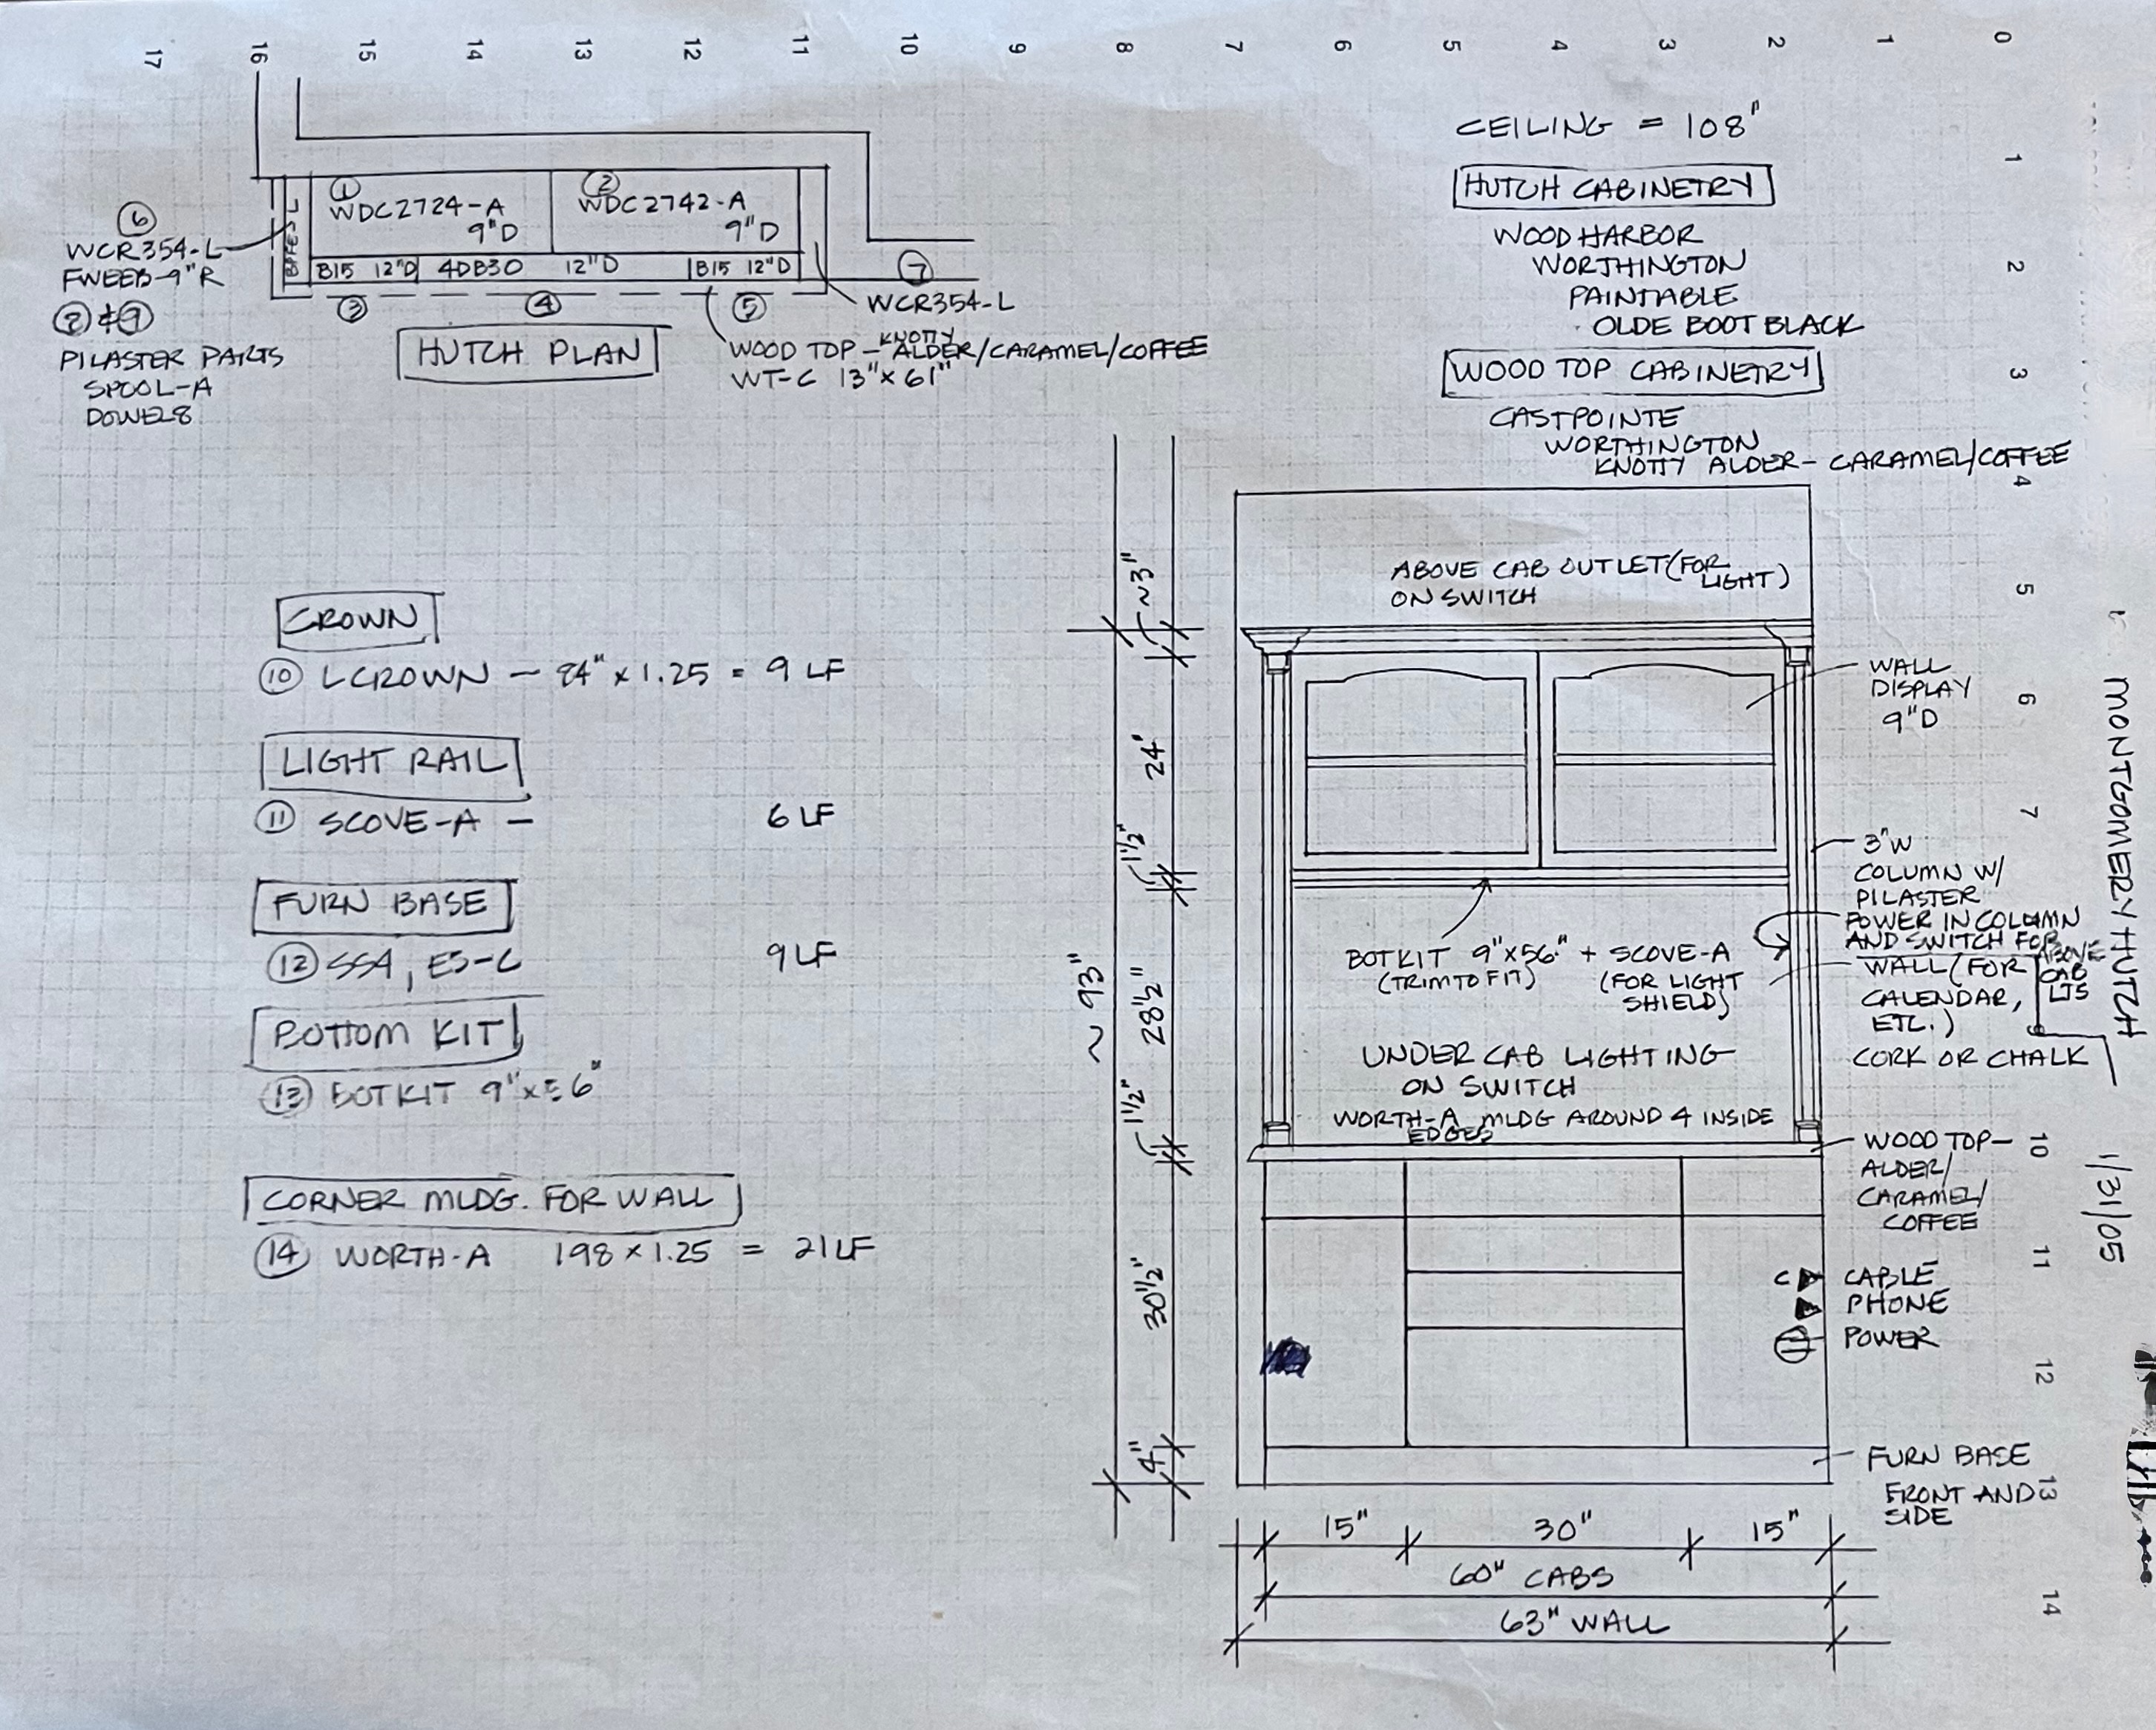 17 16 15 14 13 12 11 10 9 8 7 6 5 4 3 2 1 0
1
2
3
4
5
6
7
10
11
12
13
14
① WDC2724-A
9"D
② WDC2742-A
9"D
B15 12"D
4DB30 12"D
B15 12"D
③ ④ ⑤
⑥
WCR354-L
FWEEB-9"R
⑧ & ⑨
PILASTER PARTS
SPOOL-A
DOWEL8
HUTCH PLAN
⑦
WCR354-L
WOOD TOP - KNOTTY ALDER/CARAMEL/COFFEE
WT-C 13" x 61"
CEILING = 108"
HUTCH CABINETRY
WOOD HARBOR
WORTHINGTON
PAINTABLE
OLDE BOOT BLACK
WOOD TOP CABINETRY
CASTPOINTE
WORTHINGTON
KNOTTY ALDER - CARAMEL/COFFEE
CROWN
⑩ LCROWN - 84" x 1.25 = 9 LF
LIGHT RAIL
⑪ SCOVE-A - 6 LF
FURN BASE
⑫ SSA, ES-C 9 LF
BOTTOM KIT
⑬ BOTKIT 9" x 56"
CORNER MLDG. FOR WALL
⑭ WORTH-A 198 x 1.25 = 21 LF
~3"
24"
1½"
28½"
1½"
30½"
4"
~93"
ABOVE CAB OUTLET (FOR LIGHT)
ON SWITCH
WALL
DISPLAY
9"D
3"W
COLUMN W/
PILASTER
POWER IN COLUMN
AND SWITCH FOR
ABOVE
CAB
LTS
WALL (FOR
CALENDAR,
ETC.)
CORK OR CHALK
BOTKIT 9"x56" + SCOVE-A
(TRIM TO FIT) (FOR LIGHT
SHIELD)
UNDER CAB LIGHTING
ON SWITCH
WORTH-A MLDG AROUND 4 INSIDE
EDGES
WOOD TOP-
ALDER/
CARAMEL/
COFFEE
C CABLE
PHONE
POWER
FURN BASE
FRONT AND
SIDE
15" 30" 15"
60" CABS
63" WALL
MONTGOMERY HUTCH 1/31/05